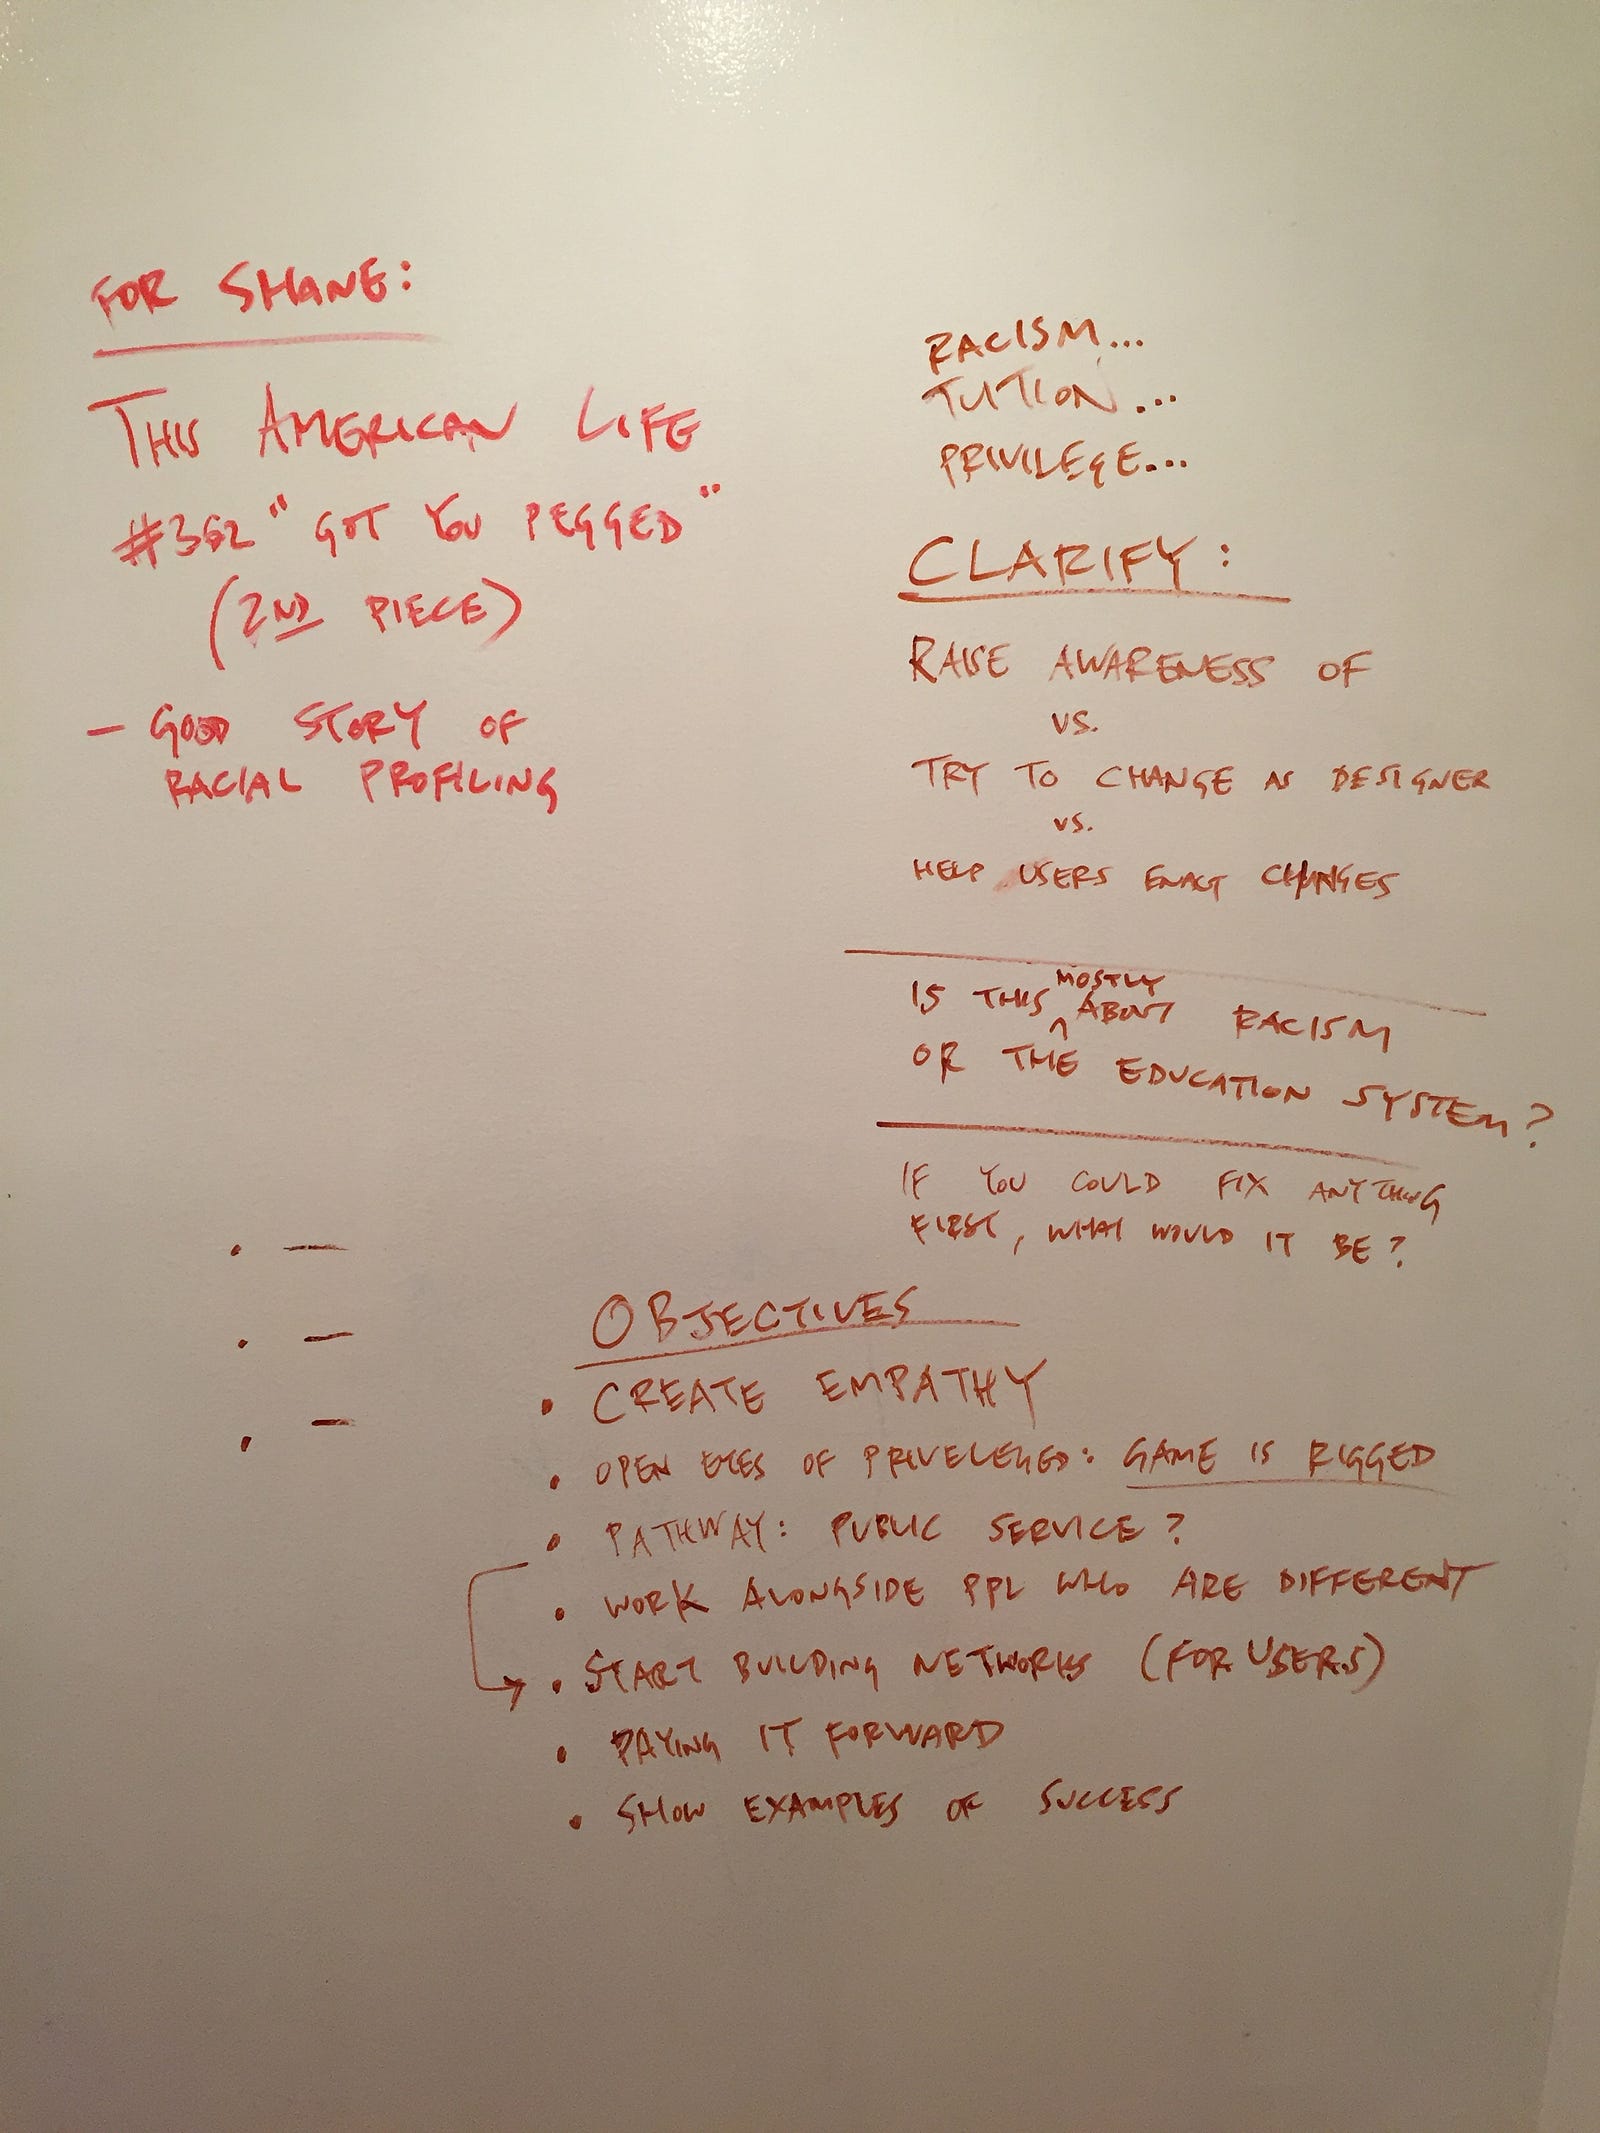 FOR SHANE:
THIS AMERICAN LIFE
#362 "GOT YOU PEGGED"
(2ND PIECE)
- GOOD STORY OF
RACIAL PROFILING
RACISM...
TUITION...
PRIVILEGE...
CLARIFY:
RAISE AWARENESS OF
VS.
TRY TO CHANGE AS DESIGNER
VS.
HELP USERS ENACT CHANGES
IS THIS MOSTLY ABOUT RACISM
OR THE EDUCATION SYSTEM?
IF YOU COULD FIX ANYTHING
FIRST, WHAT WOULD IT BE?
OBJECTIVES
• CREATE EMPATHY
• OPEN EYES OF PRIVELEGED: GAME IS RIGGED
• PATHWAY: PUBLIC SERVICE?
• WORK ALONGSIDE PPL WHO ARE DIFFERENT
• START BUILDING NETWORKS (FOR USERS)
• PAYING IT FORWARD
• SHOW EXAMPLES OF SUCCESS